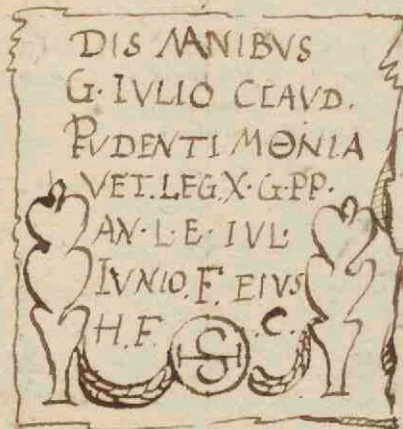 DIS MANIBVS
G. IVLIO CLAVD.
PVDENTI MONIA
VET. LEG. X. G. PP.
AN. L. E. IVL.
IVNIO. F. EIVS
H. F. . C.
HS